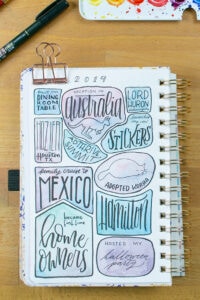 2019
DINING
ROOM
TABLE
VACATION IN
Australia
LORD
HURON
STICKERS
Houston
TX
family cruise to
MEXICO
ADOPTED
Hamilton
became
home
owners
HOSTED MY
Halloween
party